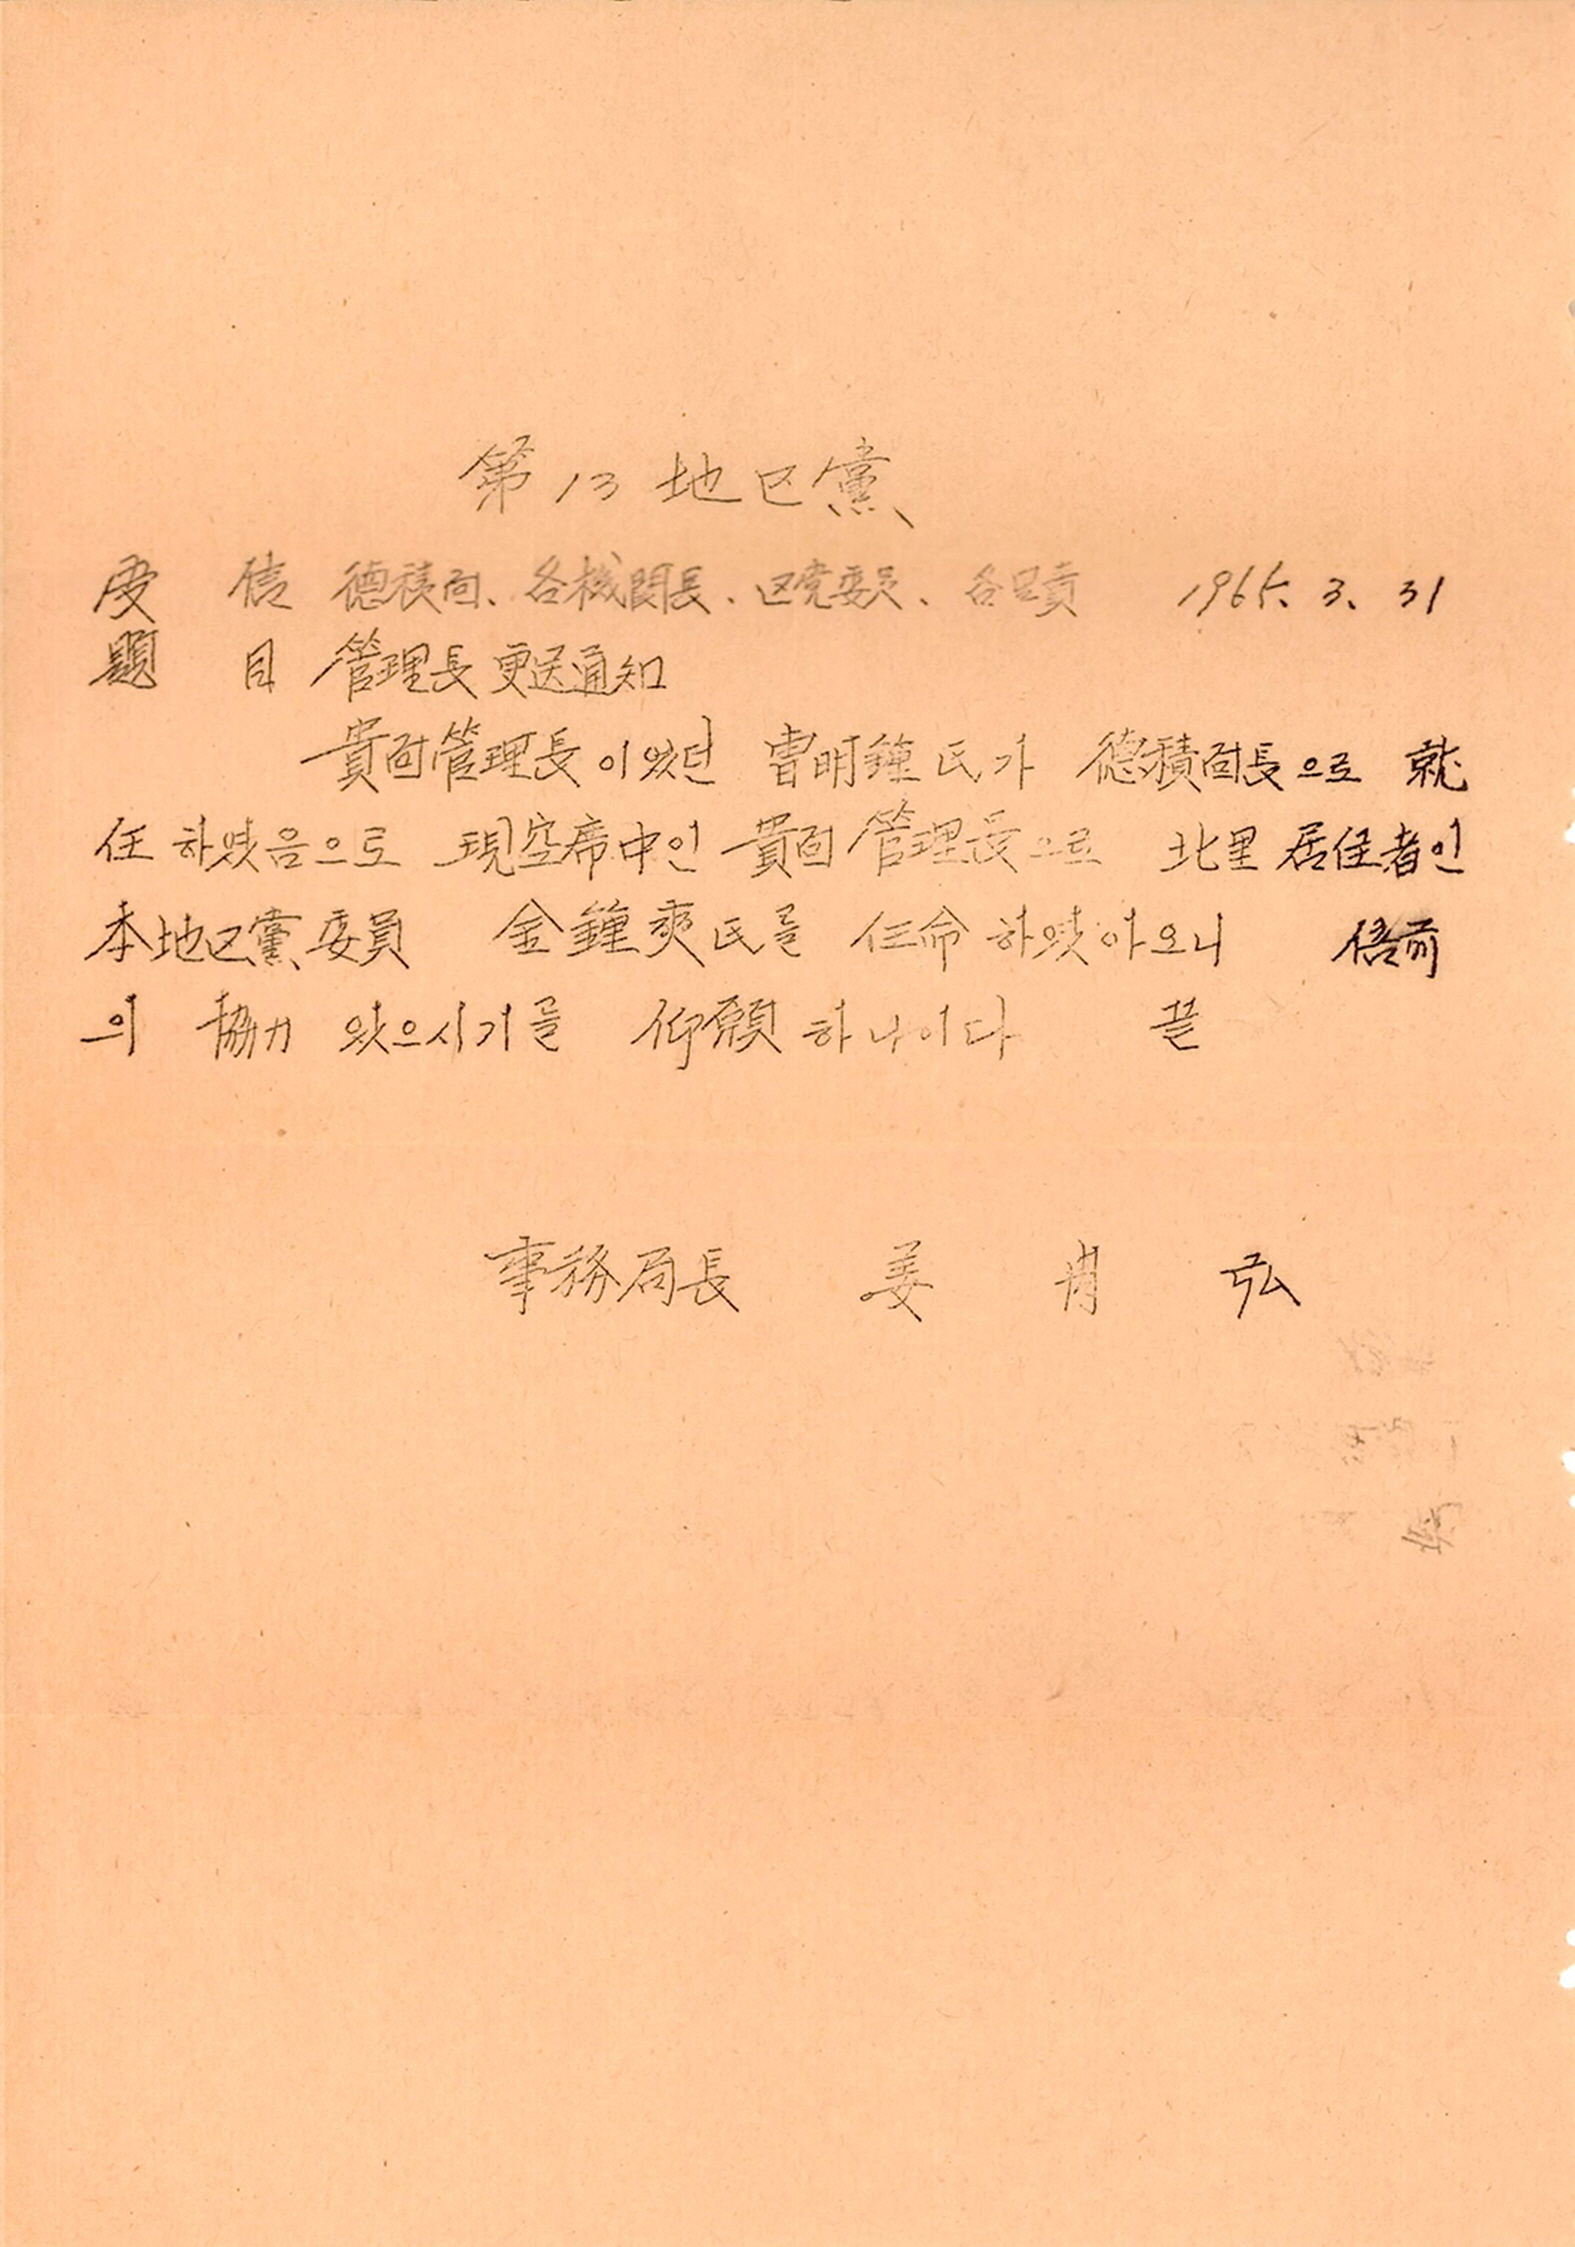 第 13 地区黨
受 信 德積面、各機関長、区党委員、各里責 1965. 3. 31
題 目 管理長更迭通知
貴面管理長이었던 曺明鍾氏가 德積面長으로 就
任하였음으로 現空席中인 貴面管理長으로 北里居住者인
本地区黨委員 金鍾奭氏를 任命하였아오니 倍前
의 協力 있으시기를 仰願하나이다 끝
事務局長 姜 弘